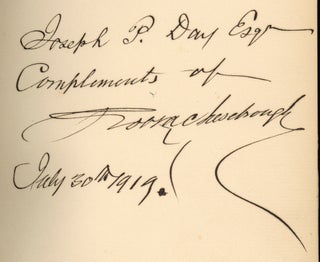 Joseph P. Day Esqr
Compliments of
Robt A Chesebrough
July 30th 1919.